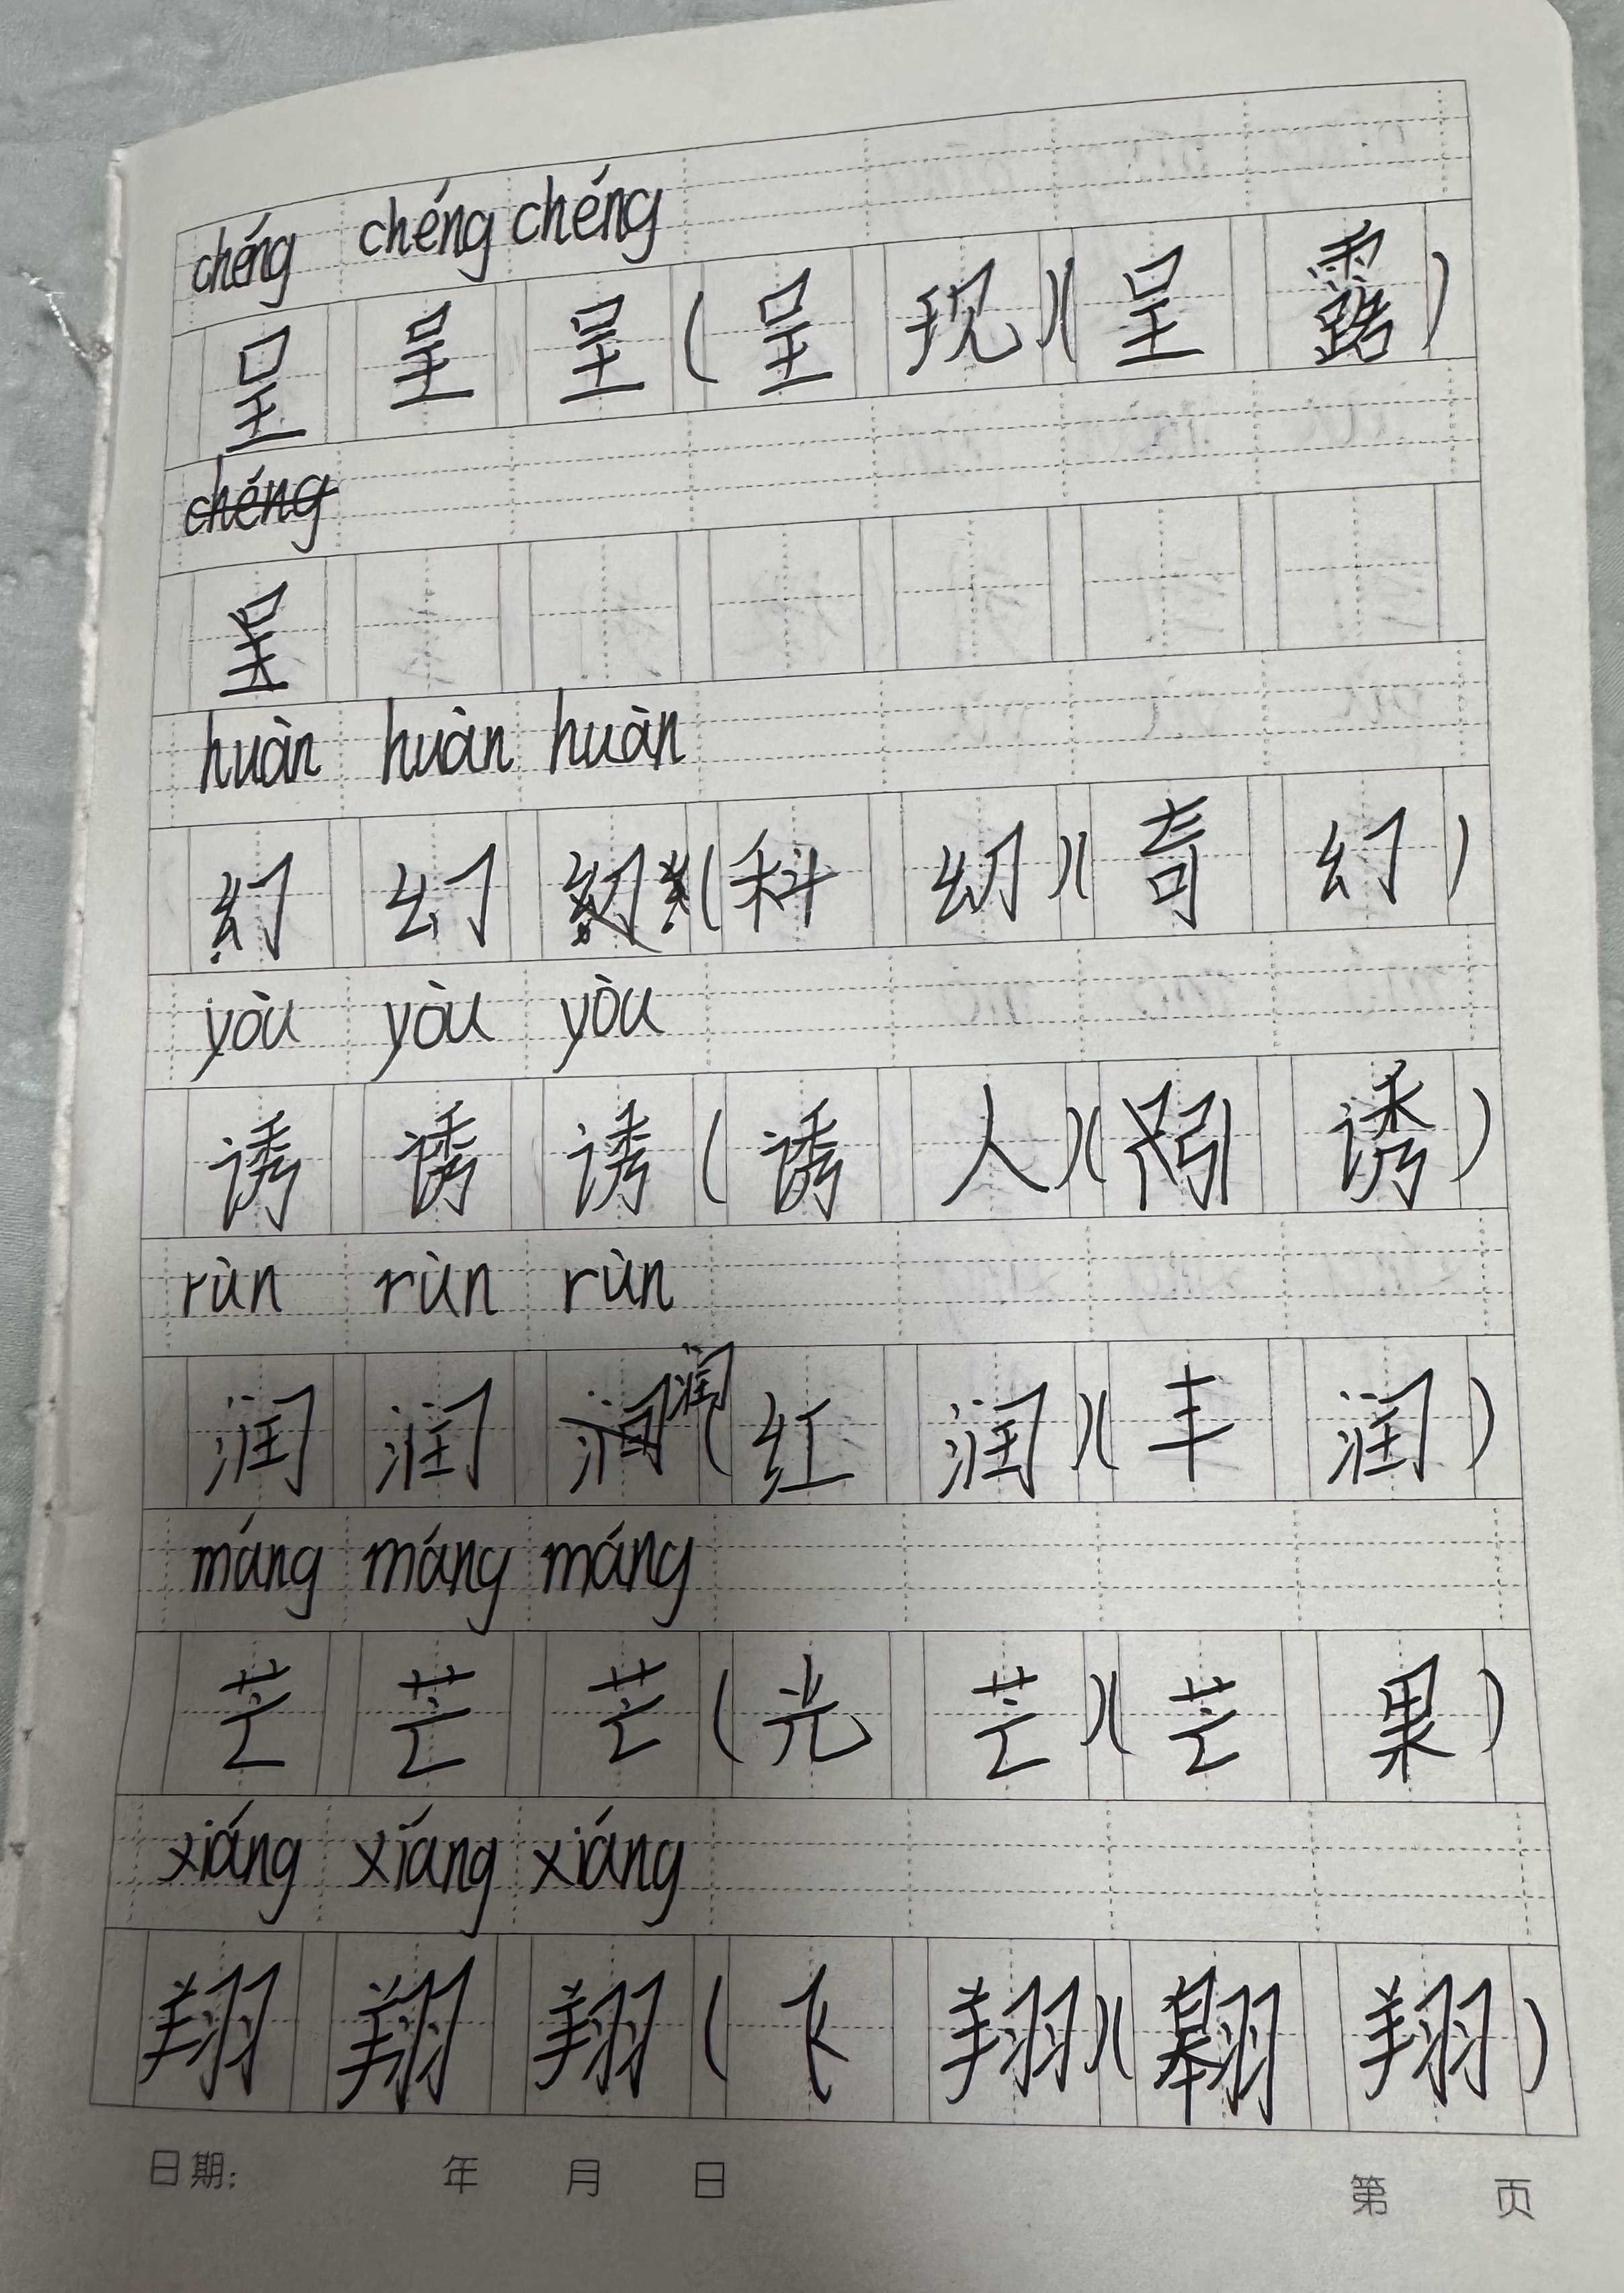 chéng chéng chéng
呈 呈 呈 ( 呈 现 ) ( 呈 露 )
chéng
呈
huàn huàn huàn
幻 幻 ( 科 幻 ) ( 奇 幻 )
yòu yòu yòu
诱 诱 诱 ( 诱 人 ) ( 诱 )
rùn rùn rùn
润 润 润 ( 红 润 ) ( 丰 润 )
máng máng máng
芒 芒 芒 ( 光 芒 ) ( 芒 果 )
xiáng xiáng xiáng
翔 翔 翔 ( 飞 翔 ) ( 翱 翔 )
日期: 年 月 日 第 页